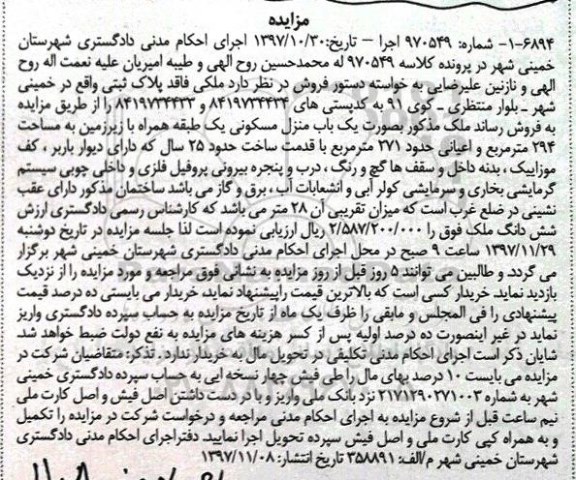 مزایده
۱-۶۸۹۴- شماره: ۹۷۰۵۴۹ اجرا – تاریخ:۱۳۹۷/۱۰/۳۰ اجرای احکام مدنی دادگستری شهرستان
خمینی شهر در پرونده کلاسه ۹۷۰۵۴۹ له محمدحسین روح الهی و طیبه امیریان علیه نعمت اله روح
الهی و نازنین علیرضایی به خواسته دستور فروش در نظر دارد ملکی فاقد پلاک ثبتی واقع در خمینی
شهر ـ بلوار منتظری ـ کوی ۹۱ به کدپستی های ۸۴۱۹۷۳۴۴۳۴ و ۸۴۱۹۷۳۴۴۳۳ را از طریق مزایده
به فروش رساند ملک مذکور بصورت یک باب منزل مسکونی یک طبقه همراه با زیرزمین به مساحت
۲۹۴ مترمربع و اعیانی حدود ۲۷۱ مترمربع با قدمت ساخت حدود ۲۵ سال که دارای دیوار باربر ، کف
موزاییک ، بدنه داخل و سقف ها گچ و رنگ ، درب و پنجره بیرونی پروفیل فلزی و داخلی چوبی سیستم
گرمایشی بخاری و سرمایشی کولر آبی و انشعابات آب ، برق و گاز می باشد ساختمان مذکور دارای عقب
نشینی در ضلع غرب است که میزان تقریبی آن ۲۸ متر می باشد که کارشناس رسمی دادگستری ارزش
شش دانگ ملک فوق را ۲/۵۸۷/۲۰۰/۰۰۰ ریال ارزیابی نموده است لذا جلسه مزایده در تاریخ دوشنبه
۱۳۹۷/۱۱/۲۹ ساعت ۹ صبح در محل اجرای احکام مدنی دادگستری شهرستان خمینی شهر برگزار
می گردد. و طالبین می توانند ۵ روز قبل از روز مزایده به نشانی فوق مراجعه و مورد مزایده را از نزدیک
بازدید نماید. خریدار کسی است که بالاترین قیمت راپیشنهاد نماید، خریدار می بایستی ده درصد قیمت
پیشنهادی را فی المجلس و مابقی را ظرف یک ماه از تاریخ مزایده به حساب سپرده دادگستری واریز
نماید در غیر اینصورت ده درصد اولیه پس از کسر هزینه های مزایده به نفع دولت ضبط خواهد شد.
شایان ذکر است اجرای احکام مدنی تکلیفی در تحویل مال به خریدار ندارد . تذکر: متقاضیان شرکت در
مزایده می بایست ۱۰ درصد بهای مال را طی فیش چهار نسخه ایی به حساب سپرده دادگستری خمینی
شهر به شماره ۲۱۷۱۲۹۰۲۷۱۰۰۳ نزد بانک ملی واریز و با در دست داشتن اصل فیش و اصل کارت ملی
نیم ساعت قبل از شروع مزایده به اجرای احکام مدنی مراجعه و درخواست شرکت در مزایده را تکمیل
و به همراه کپی کارت ملی و اصل فیش سپرده تحویل اجرا نمایید. دفتراجرای احکام مدنی دادگستری
شهرستان خمینی شهر م/الف: ۳۵۸۸۹۱ تاریخ انتشار: ۱۳۹۷/۱۱/۰۸